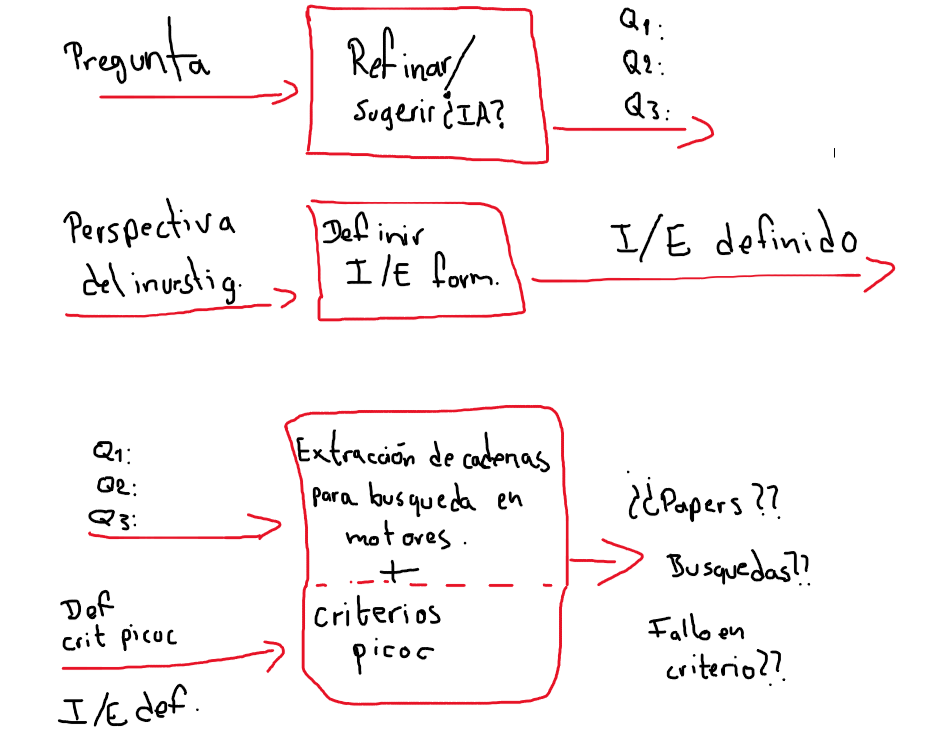 Pregunta
Refinar/
sugerir ¿IA?
Q1:
Q2:
Q3:
Perspectiva
del invrstig.
Definir
I/E form.
I/E definido
Q1:
Q2:
Q3:
Def
crit picoc
I/E def.
Extracción de cadenas
para busqueda en
motores.
+
criterios
picoc
¿¿Papers??
Busquedas??
Fallo en
criterio??